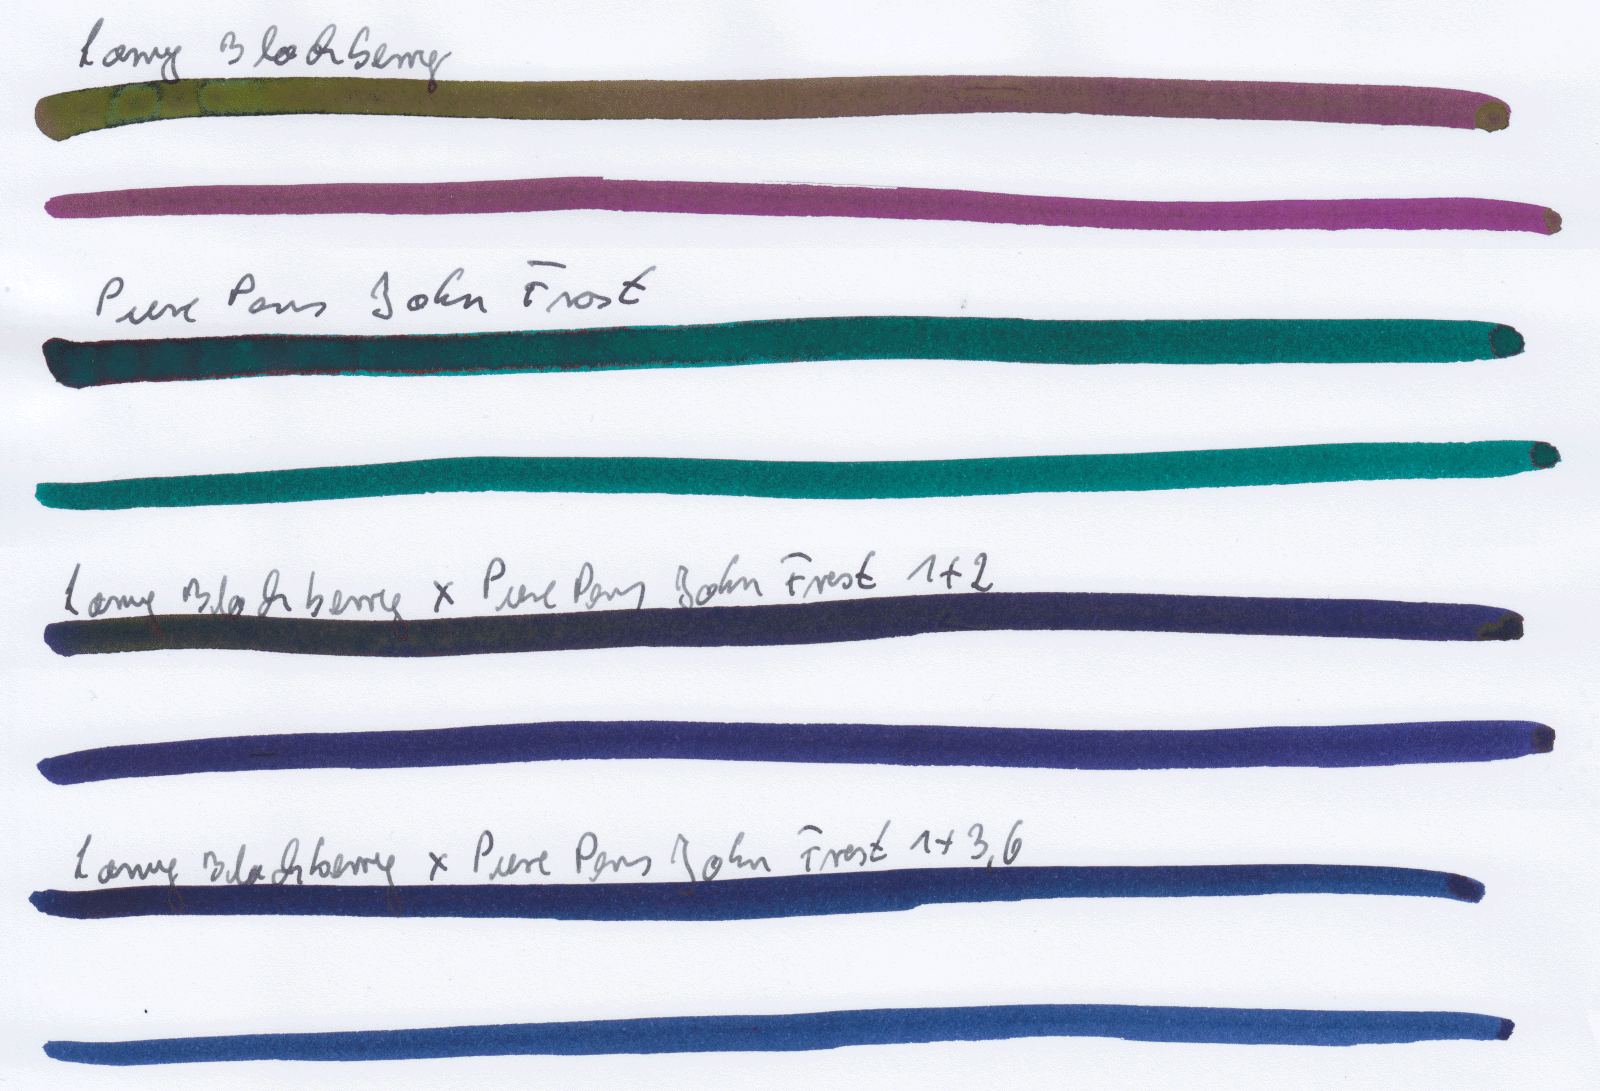 Lamy Blackberry
Pure Pens John Frost
Lamy Blackberry x Pure Pens John Frost 1+2
Lamy Blackberry x Pure Pens John Frost 1+3,6